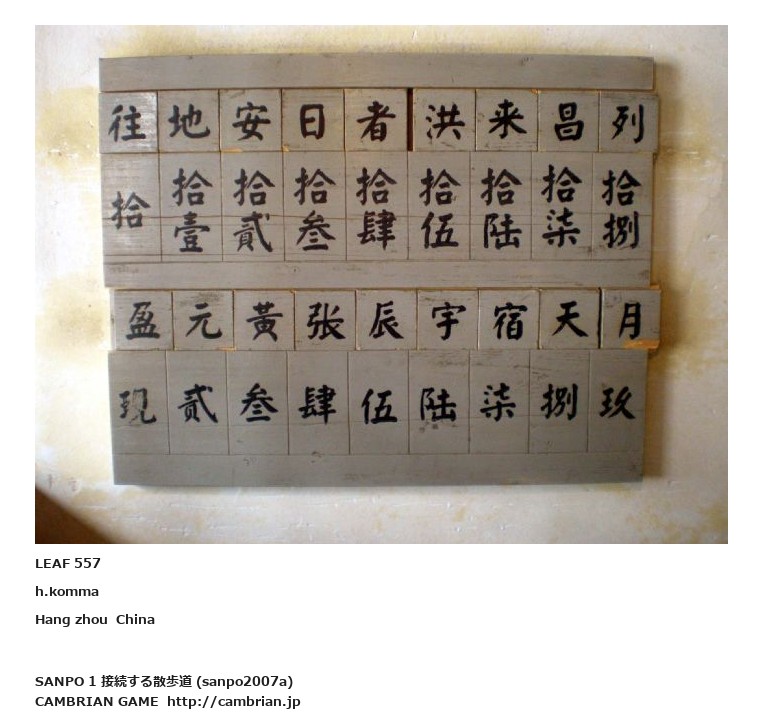 往 地 安 日 者 洪 来 昌 列
拾 拾壹 拾贰 拾叁 拾肆 拾伍 拾陆 拾柒 拾捌
盈 元 黃 张 辰 宇 宿 天 月
现 贰 叁 肆 伍 陆 柒 捌 玖
LEAF 557
h.komma
Hang zhou China
SANPO 1 接続する散歩道 (sanpo2007a)
CAMBRIAN GAME http://cambrian.jp